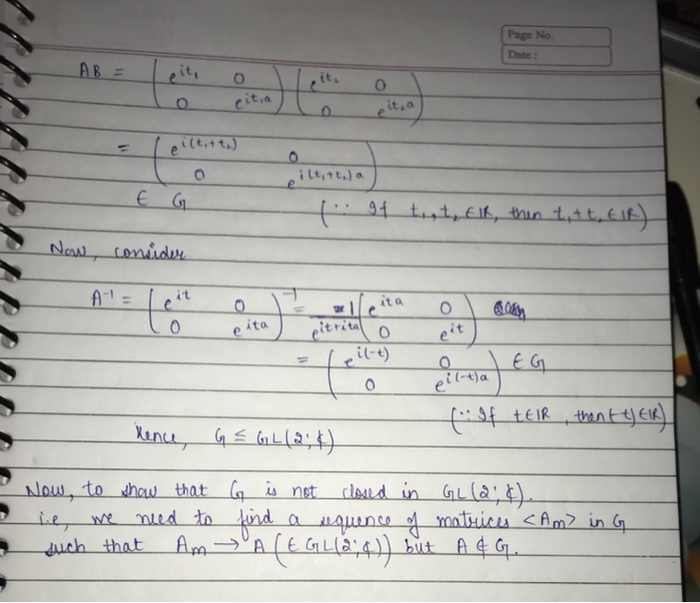 Page No.
Date :
AB = ( e^{it₁} 0 ; 0 e^{it₁a} ) ( e^{it₂} 0 ; 0 e^{it₂a} )
= ( e^{i(t₁+t₂)} 0 ; 0 e^{i(t₁+t₂)a} )
∈ G (∵ If t₁, t₂ ∈ ℝ, then t₁+t₂ ∈ ℝ)
Now, consider
A⁻¹ = ( e^{it} 0 ; 0 e^{ita} )⁻¹ = 1/e^{it+ita} ( e^{ita} 0 ; 0 e^{it} )
= ( e^{i(-t)} 0 ; 0 e^{i(-t)a} ) ∈ G
(∵ If t ∈ ℝ, then (-t) ∈ ℝ)
Hence, G ≤ GL(2; ℂ)
Now, to show that G is not closed in GL(2; ℂ).
i.e, we need to find a sequence of matrices <Am> in G
such that Am → A (∈ GL(2; ℂ)) but A ∉ G.